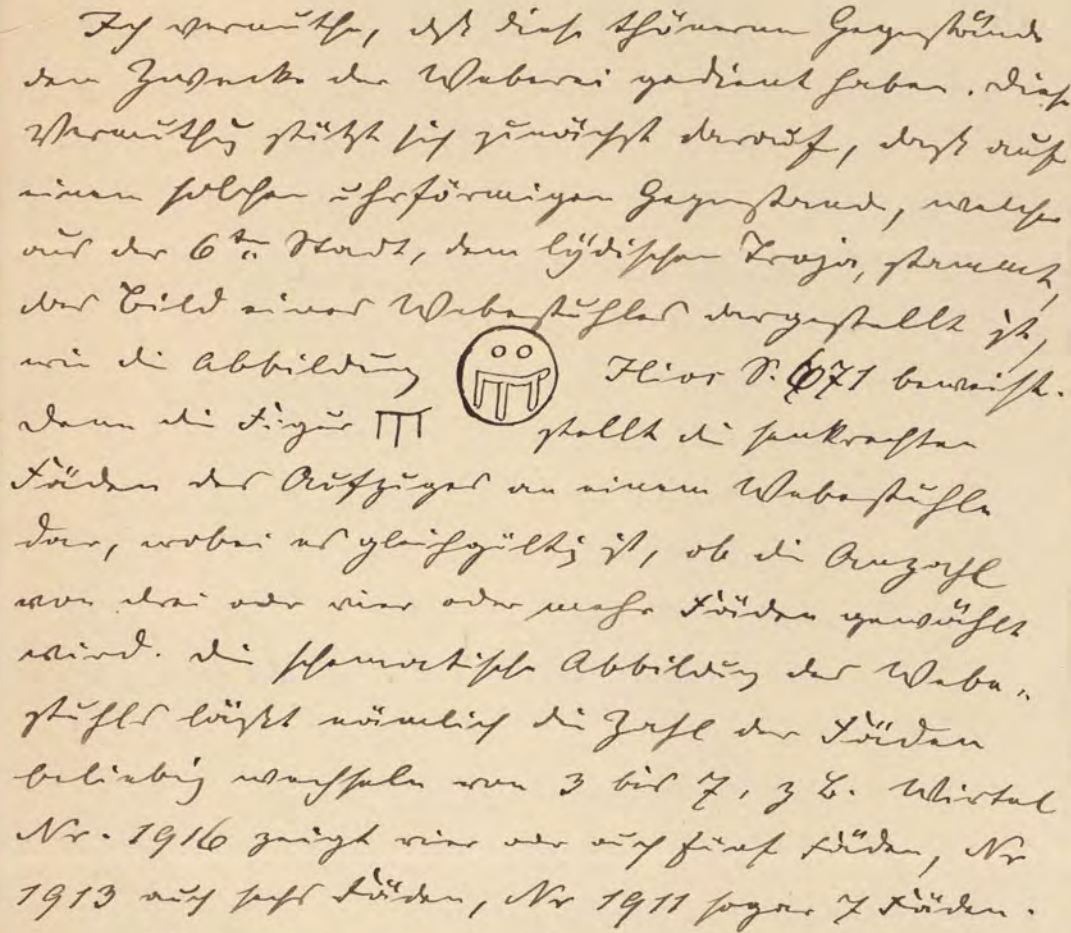 Ich vermuthe, daß diese thönernen Gegenstände
dem Zwecke der Weberei gedient haben. Diese
Vermuthg stützt sich zunächst darauf, daß auf
einem solchen uhrförmigen Gegenstand, welcher
aus der 6ten Stadt, dem lydischen Troja, stammt,
das Bild eines Webestuhles dargestellt ist,
wie die Abbildung Ilios S. 671 beweist.
Denn die Figur stellt die senkrechten
Fäden des Aufzuges an einem Webestuhle
dar, wobei es gleichgültig ist, ob die Anzahl
von drei oder vier oder mehr Fäden gewählt
wird. Die schematische Abbildung des Webe-
stuhls läßt nämlich die Zahl der Fäden
beliebig wechseln von 3 bis 7, z B. Wirtel
Nr. 1916 zeigt vier oder auch fünf Fäden, Nr
1913 auch sechs Fäden, Nr 1911 sogar 7 Fäden.